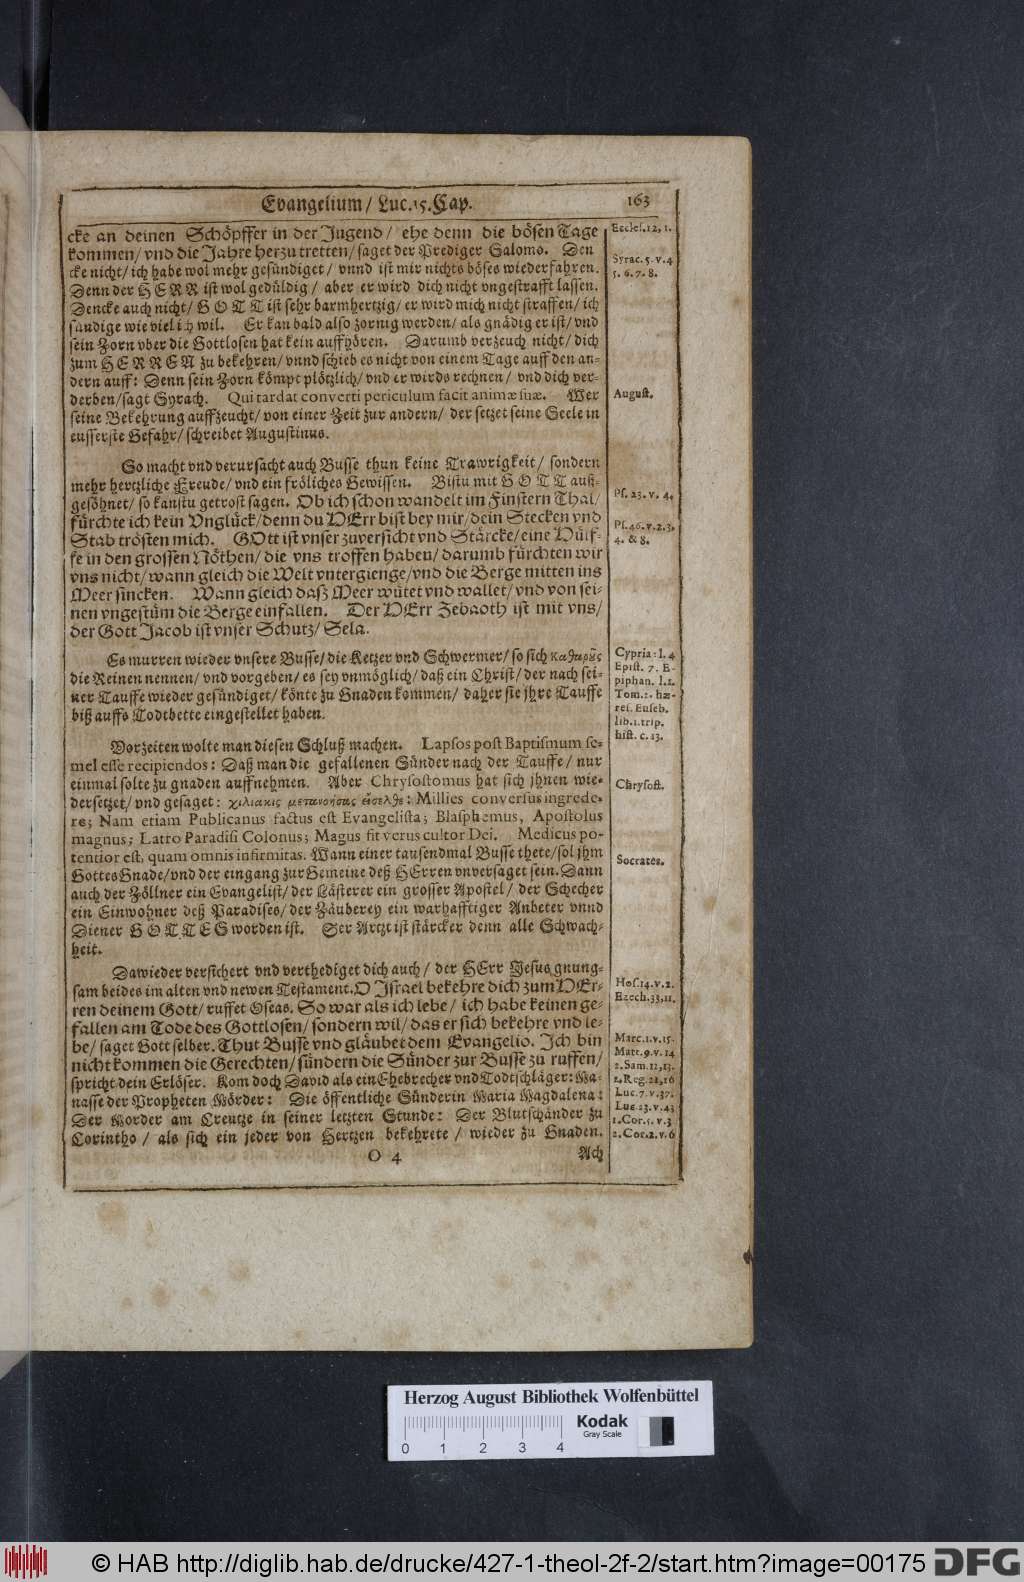 Evangelium / Luc. 15. Cap. 163
cke an deinen Schöpffer in der Jugend / ehe denn die bösen Tage
kommen / vnd die Jahre herzu tretten / saget der Prediger Salomo. Den
cke nicht / ich habe wol mehr gesündiget / vnnd ist mir nichts böses wiederfahren.
Denn der HERR ist wol gedüldig / aber er wird dich nicht vngestrafft lassen.
Dencke auch nicht / GOTT ist sehr barmhertzig / er wird mich nicht straffen / ich
sündige wie viel ich wil. Er kan bald also zornig werden / als gnädig er ist / vnd
sein Zorn vber die Gottlosen hat kein auffhören. Darumb verzeuch nicht / dich
zum HERREN zu bekehren / vnnd schieb es nicht von einem Tage auff den an-
dern auff: Denn sein Zorn kömpt plötzlich / vnd er wirds rechnen / vnd dich ver-
derben / sagt Syrach. Qui tardat converti periculum facit animæ suæ. Wer
seine Bekehrung auffzeucht / von einer Zeit zur andern / der setzet seine Seele in
eusserste Gefahr / schreibet Augustinus.
So macht vnd verursacht auch Busse thun keine Trawrigkeit / sondern
mehr hertzliche Freude / vnd ein fröliches Gewissen. Bistu mit GOTT auß-
gesöhnet / so kanstu getrost sagen. Ob ich schon wandelt im Finstern Thal /
fürchte ich kein Vnglück / denn du HErr bist bey mir / dein Stecken vnd
Stab trösten mich. GOtt ist vnser zuversicht vnd Stärcke / eine Hülf-
fe in den grossen Nöthen / die vns troffen haben / darumb fürchten wir
vns nicht / wann gleich die Welt vntergienge / vnd die Berge mitten ins
Meer sincken. Wann gleich daß Meer wütet vnd wallet / vnd von sei-
nen vngestüm die Berge einfallen. Der HErr Zebaoth ist mit vns /
der Gott Jacob ist vnser Schutz / Sela.
Es murren wieder vnsere Busse / die Ketzer vnd Schwermer / so sich καθαροὺς
die Reinen nennen / vnd vorgeben / es sey vnmöglich / daß ein Christ / der nach sei-
ner Tauffe wieder gesündiget / könte zu Gnaden kommen / daher sie jhre Tauffe
biß auffs Todtbette eingestellet haben.
Vorzeiten wolte man diesen Schluß machen. Lapsos post Baptismum se-
mel esse recipiendos: Daß man die gefallenen Sünder nach der Tauffe / nur
einmal solte zu gnaden auffnehmen. Aber Chrysostomus hat sich jhnen wie-
dersetzet / vnd gesaget: χιλιακις μετανοήσας εἴσελθε: Millies conversus ingrede-
re; Nam etiam Publicanus factus est Evangelista; Blasphemus, Apostolus
magnus; Latro Paradisi Colonus; Magus fit verus cultor Dei. Medicus po-
tentior est, quam omnis infirmitas. Wann einer tausendmal Busse thete / sol jhm
Gottes Gnade / vnd der eingang zur Gemeine deß HErren vnversaget sein. Dann
auch der Zöllner ein Evangelist / der Lästerer ein grosser Apostel / der Schecher
ein Einwohner deß Paradises / der Zäuberey ein warhafftiger Anbeter vnnd
Diener GOTTES worden ist. Der Artzt ist stärcker denn alle Schwach-
heit.
Dawieder versichert vnd verthediget dich auch / der HErr Jesus gnung-
sam beides im alten vnd newen Testament. O Israel bekehre dich zum HEr-
ren deinem Gott / ruffet Oseas. So war als ich lebe / ich habe keinen ge-
fallen am Tode des Gottlosen / sondern wil / das er sich bekehre vnd le-
be / saget Gott selber. Thut Busse vnd gläubet dem Evangelio. Ich bin
nicht kommen die Gerechten / sündern die Sünder zur Busse zu ruffen /
spricht dein Erlöser. Kom doch David als ein Ehebrecher vnd Todtschläger: Ma-
nasse der Propheten Mörder: Die öffentliche Sünderin Maria Magdalena:
Der Morder am Creutze in seiner letzten Stunde: Der Blutschänder zu
Corintho / als sich ein jeder von Hertzen bekehrete / wieder zu Gnaden.
O 4 Ach
Eccles. 12, 1.
Syrac. 5. v. 4
5. 6. 7. 8.
August.
Ps. 23. v. 4.
Ps. 46. v. 2. 3.
4. & 8.
Cypria: l. 4
Epist. 7. E-
piphan. l. 2.
Tom. 1. hæ-
rei. Euseb.
lib. 1. trip.
hist. c. 13.
Chrysost.
Socrates.
Hos. 14. v. 2.
Ezech. 33, 11.
Marc. 1. v. 15.
Matt. 9. v. 14
2. Sam. 12, 13.
2, Reg. 21, 16
Luc. 7. v. 37.
Luc. 23. v. 43
1. Cor. 5. v. 3
2. Cor. 2. v. 6
Herzog August Bibliothek Wolfenbüttel
Kodak
Gray Scale
0 1 2 3 4
© HAB http://diglib.hab.de/drucke/427-1-theol-2f-2/start.htm?image=00175 DFG